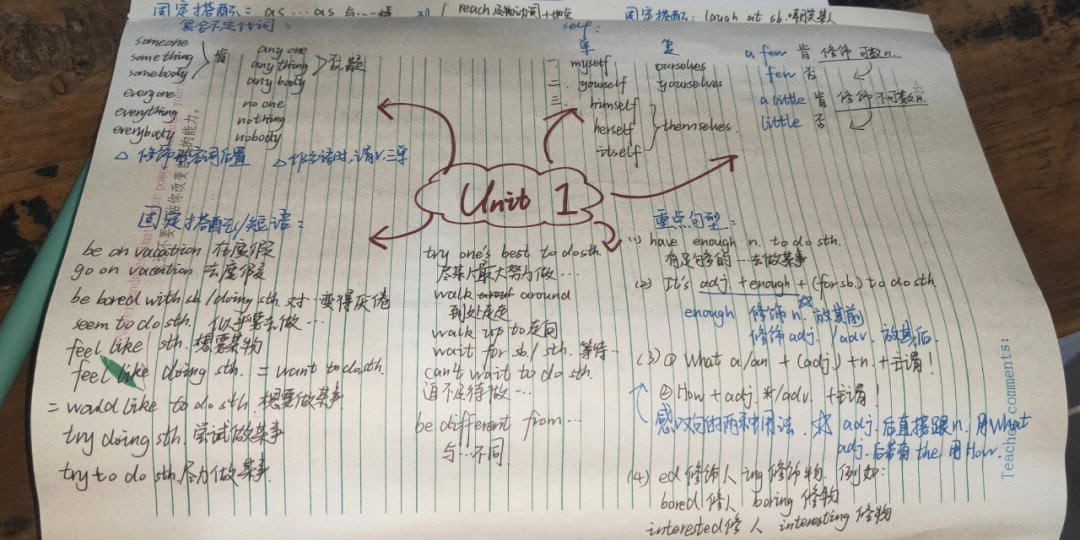 固定搭配: as...as 与...一样
reach 及物动词+地点
固定搭配: laugh at sb. 嘲笑某人
复合不定代词:
someone
something
somebody
肯
any one
anything
any body
否、疑
everyone
everything
everybody
no one
nothing
nobody
△ 修饰 后置
△ 作主语时,谓v.三单
self:
单 复
一. myself ourselves
二. yourself yourselves
三. himself
herself
itself
themselves
a few 肯 修饰可数n.
few 否
a little 肯 修饰不可数n.
little 否
Unit 1
固定搭配/短语:
be on vacation 在度假
go on vacation 去度假
be bored with sb./doing sth. 对…变得厌倦
seem to do sth. 似乎要去做…
feel like sth. 想要某物
feel like doing sth. = want to do sth.
= would like to do sth. 想要做某事
try doing sth. 尝试做某事
try to do sth. 尽力做某事
try one's best to do sth.
尽某人最大努力做…
walk around
到处走走
walk up to 走向
wait for sb./sth. 等待…
can't wait to do sth.
迫不及待做…
be different from…
与…不同
重点句型:
(1) have enough n. to do sth.
有足够多的…去做某事
(2) It's adj. + enough + (for sb) to do sth.
enough 修饰 n. 放其前
修饰 adj./adv. 放其后.
(3) ① What a/an + (adj.) + n. + 主谓!
② How + adj. */adv. + 主谓!
感叹句的两种用法. adj. 后直接跟 n. 用 What
adj. 后若有 the 用 How.
(4) ed 修饰人 ing 修饰物. 例如:
bored 修人 boring 修物
interested 修人 interesting 修物
Teacher comments:
你改变 的能力。